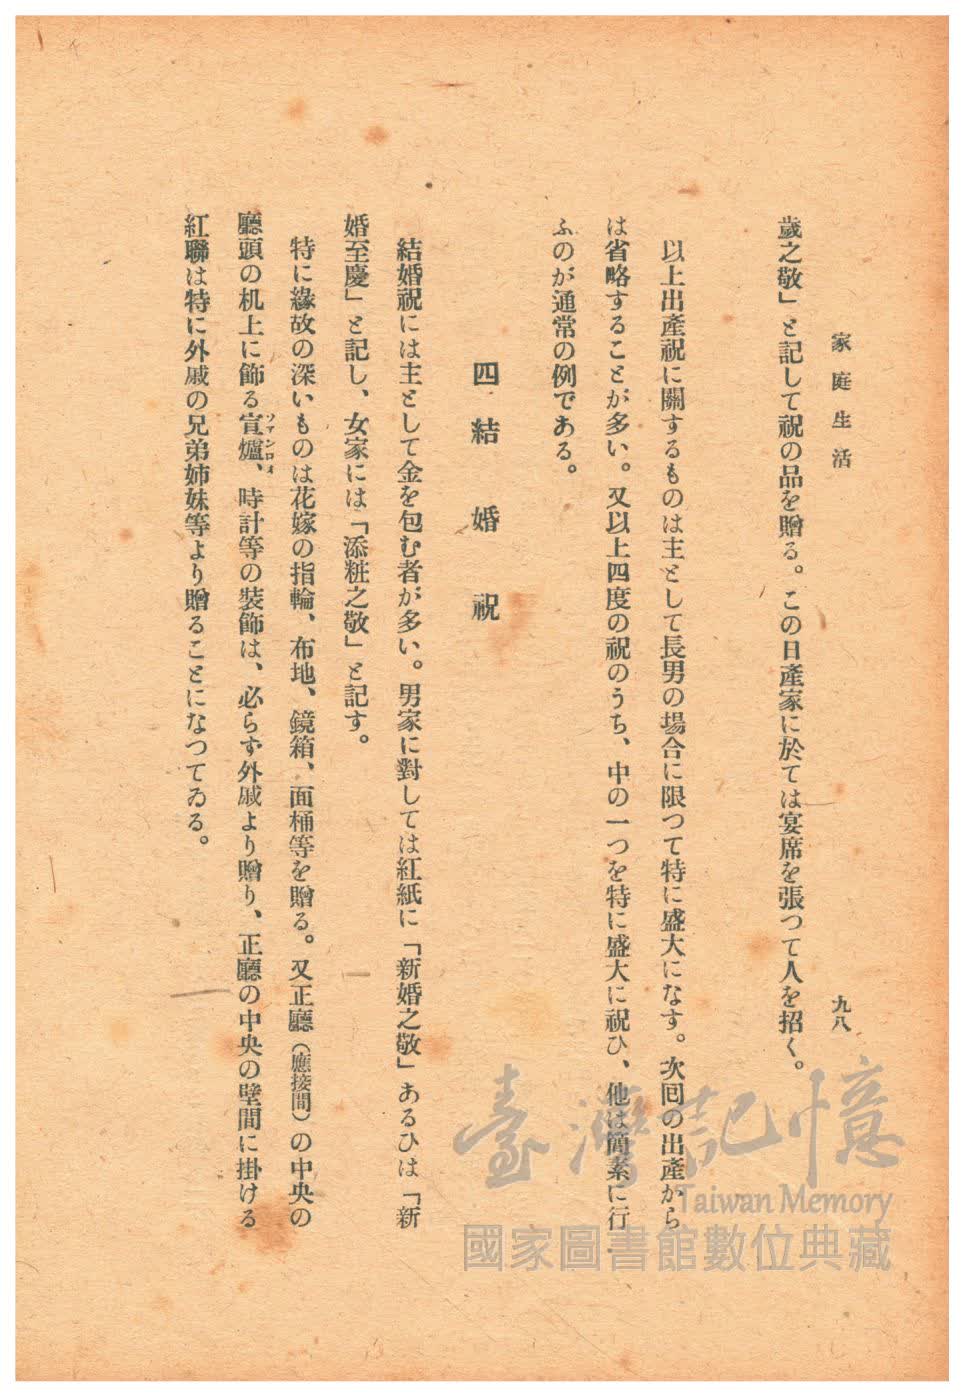 家庭生活
九八
歲之敬」と記して祝の品を贈る。この日產家に於ては宴席を張つて人を招く。
以上出產祝に關するものは主として長男の場合に限つて特に盛大になす。次回の出產から
は省略することが多い。又以上四度の祝のうち、中の一つを特に盛大に祝ひ、他は簡素に行
ふのが通常の例である。
四 結婚祝
結婚祝には主として金を包む者が多い。男家に對しては紅紙に「新婚之敬」あるひは「新
婚至慶」と記し、女家には「添粧之敬」と記す。
特に緣故の深いものは花嫁の指輪、布地、鏡箱、面桶等を贈る。又正廳（應接間）の中央の
廳頭の机上に飾る宣爐、時計等の裝飾は、必らず外戚より贈り、正廳の中央の壁間に掛ける
ソアンロオ
紅聯は特に外戚の兄弟姉妹等より贈ることになつてゐる。
臺灣記憶
Taiwan Memory
國家圖書館數位典藏